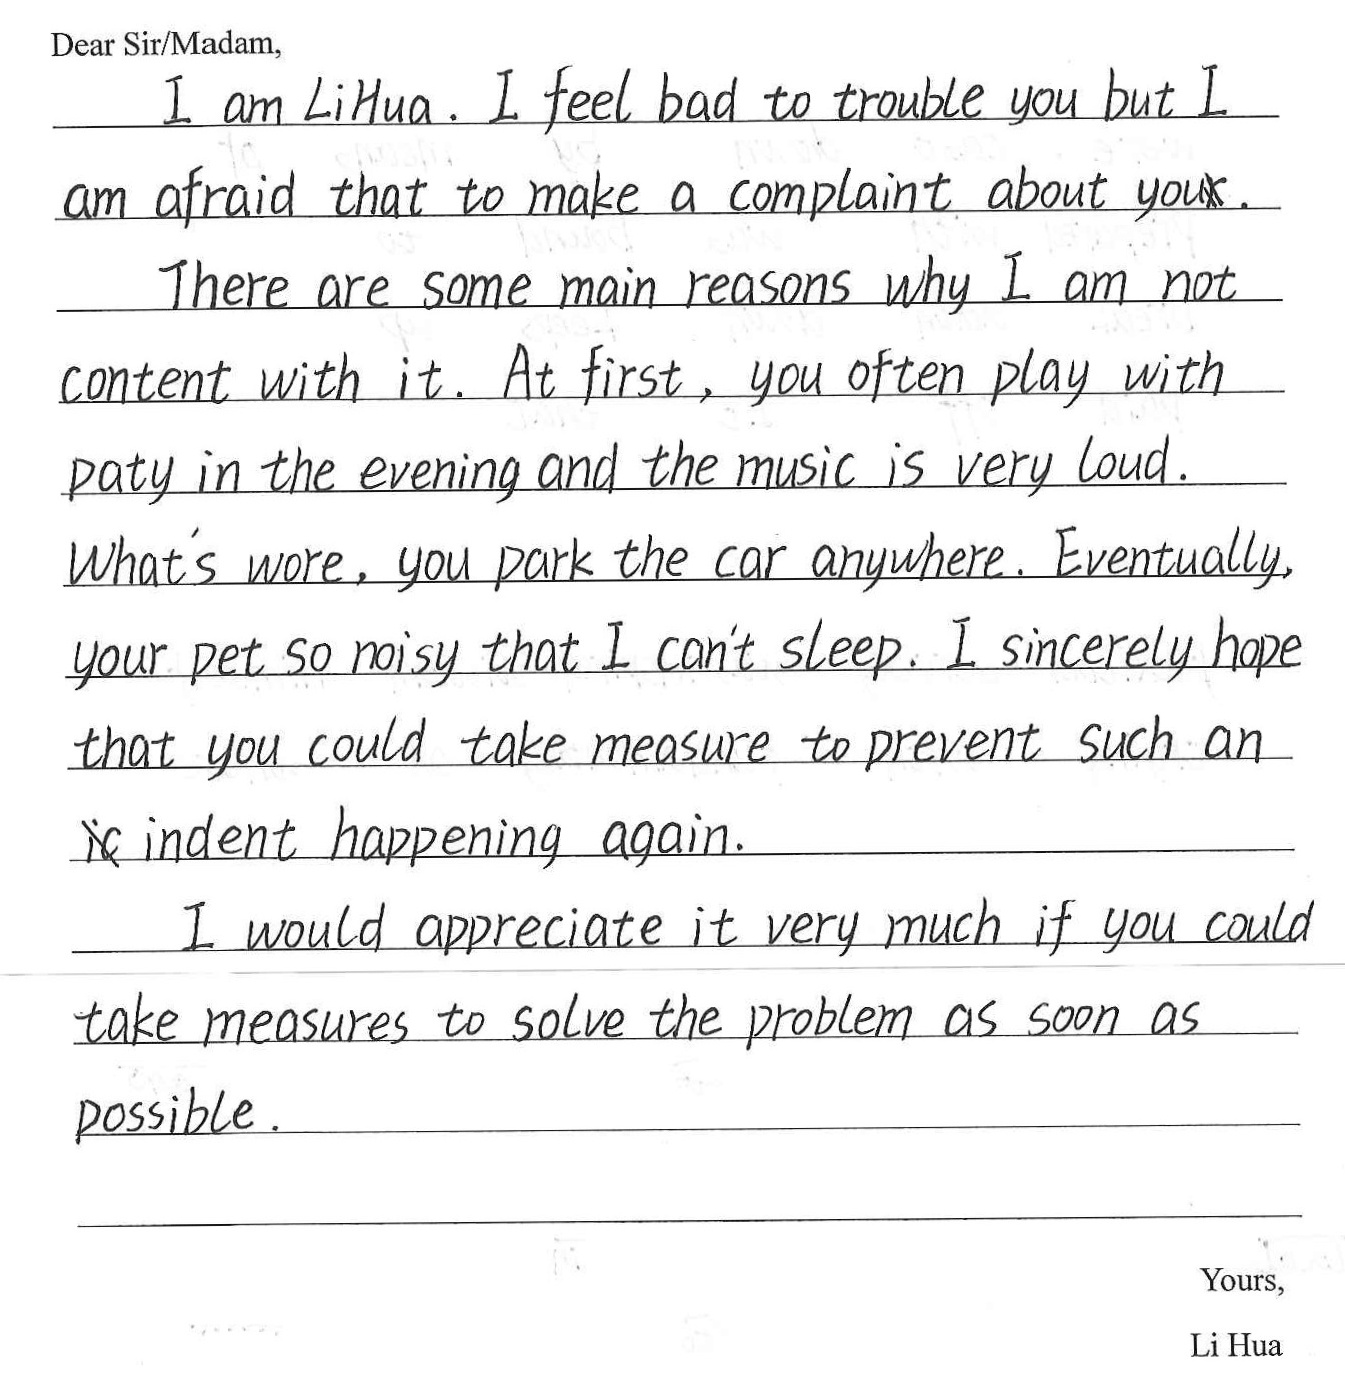 Dear Sir/Madam,
I am LiHua. I feel bad to trouble you but I
am afraid that to make a complaint about you.
There are some main reasons why I am not
content with it. At first, you often play with
paty in the evening and the music is very loud.
What's wore, you park the car anywhere. Eventually,
your pet so noisy that I can't sleep. I sincerely hope
that you could take measure to prevent such an
indent happening again.
I would appreciate it very much if you could
take measures to solve the problem as soon as
possible.
Yours,
Li Hua